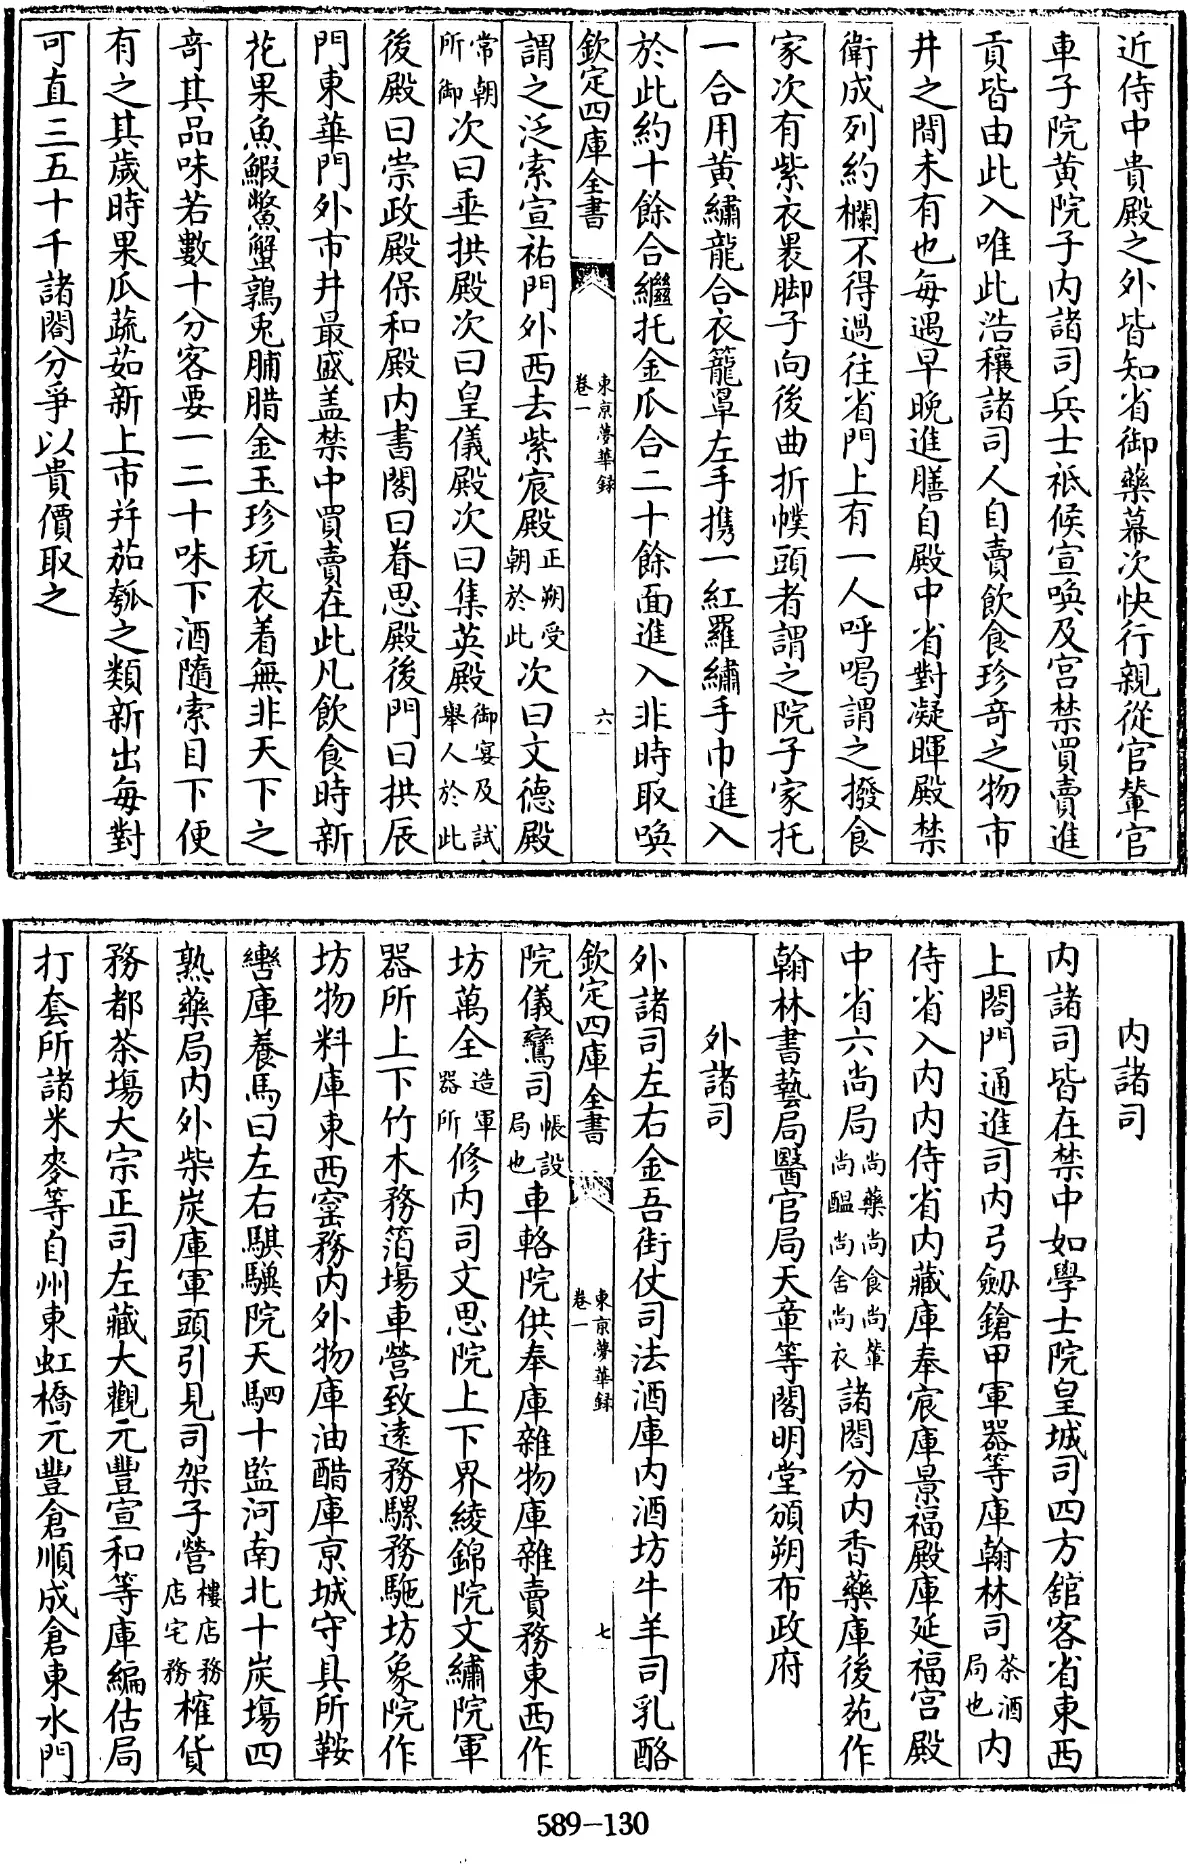 近侍中貴殿之外皆知省御藥幕次快行親從官輦官
車子院黄院子内諸司兵士祗候宣喚及宫禁買賣進
貢皆由此入唯此浩穰諸司人自賣飲食珍奇之物市
井之間未有也每遇早晚進膳自殿中省對凝暉殿禁
衛成列約欄不得過往省門上有一人呼喝謂之撥食
家次有紫衣裹脚子向後曲折幞頭者謂之院子家托
一合用黄繡龍合衣籠罩左手携一紅羅繡手巾進入
於此約十餘合繼托金瓜合二十餘面進入非時取喚
欽定四庫全書
東京夢華録
卷一
六
謂之泛索宣祐門外西去紫宸殿正朔受朝於此次曰文德殿
常朝所御次曰垂拱殿次曰皇儀殿次曰集英殿御宴及試舉人於此
後殿曰崇政殿保和殿内書閣曰睿思殿後門曰拱辰
門東華門外市井最盛盖禁中買賣在此凡飲食時新
花果魚鰕鱉蟹鶉兎脯腊金玉珍玩衣着無非天下之
竒其品味若數十分客要一二十味下酒隨索目下便
有之其歲時果瓜蔬茹新上市并茄瓠之類新出每對
可直三五十千諸閤分爭以貴價取之
内諸司
内諸司皆在禁中如學士院皇城司四方舘客省東西
上閤門通進司内弓劒鎗甲軍器等庫翰林司茶酒局也内
侍省入内内侍省内藏庫奉宸庫景福殿庫延福宫殿
中省六尚局尚藥尚食尚輦尚醖尚舍尚衣諸閤分内香藥庫後苑作
翰林書藝局醫官局天章等閣明堂頒朔布政府
外諸司
外諸司左右金吾街仗司法酒庫内酒坊牛羊司乳酪
欽定四庫全書
東京夢華録
卷一
七
院儀鸞司帳設局也車輅院供奉庫雜物庫雜賣務東西作
坊萬全造軍器所修内司文思院上下界綾錦院文繡院軍
器所上下竹木務箔場車營致遠務騾務駞坊象院作
坊物料庫東西窰務内外物庫油醋庫京城守具所鞍
轡庫養馬曰左右騏驥院天駟十監河南北十炭場四
熟藥局内外柴炭庫軍頭引見司架子營樓店務店宅務榷貨
務都茶塲大宗正司左藏大觀元豐宣和等庫編估局
打套所諸米麥等自州東虹橋元豐倉順成倉東水門
589-130